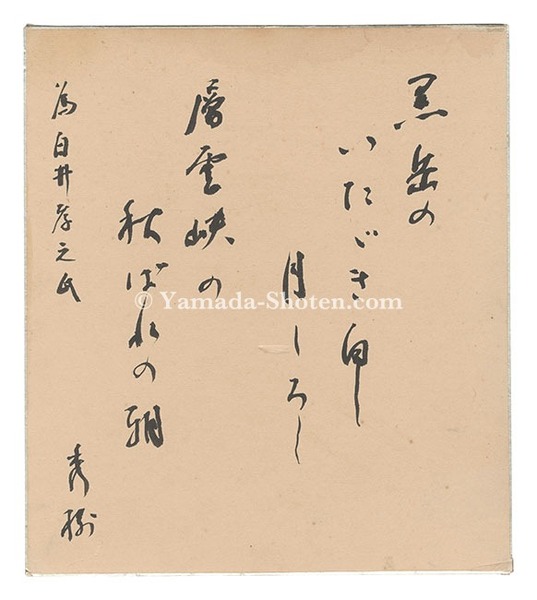 黒岳の
いたゞき白し
月しろし
層雲峡の
秋ばれの朝
為白井孝之氏
秀樹
© Yamada-Shoten.com